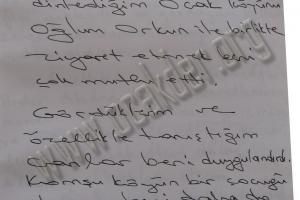 dinlediğim Ocak köyünü
Oğlum Orkun ile birlikte
ziyaret etmek beni
çok mutlu etti.
Gördüklerim ve
özellikle tanıştığım
Canlar beni duygulandırdı.
Komşu köyün bir çocuğu
www.ocakder.org